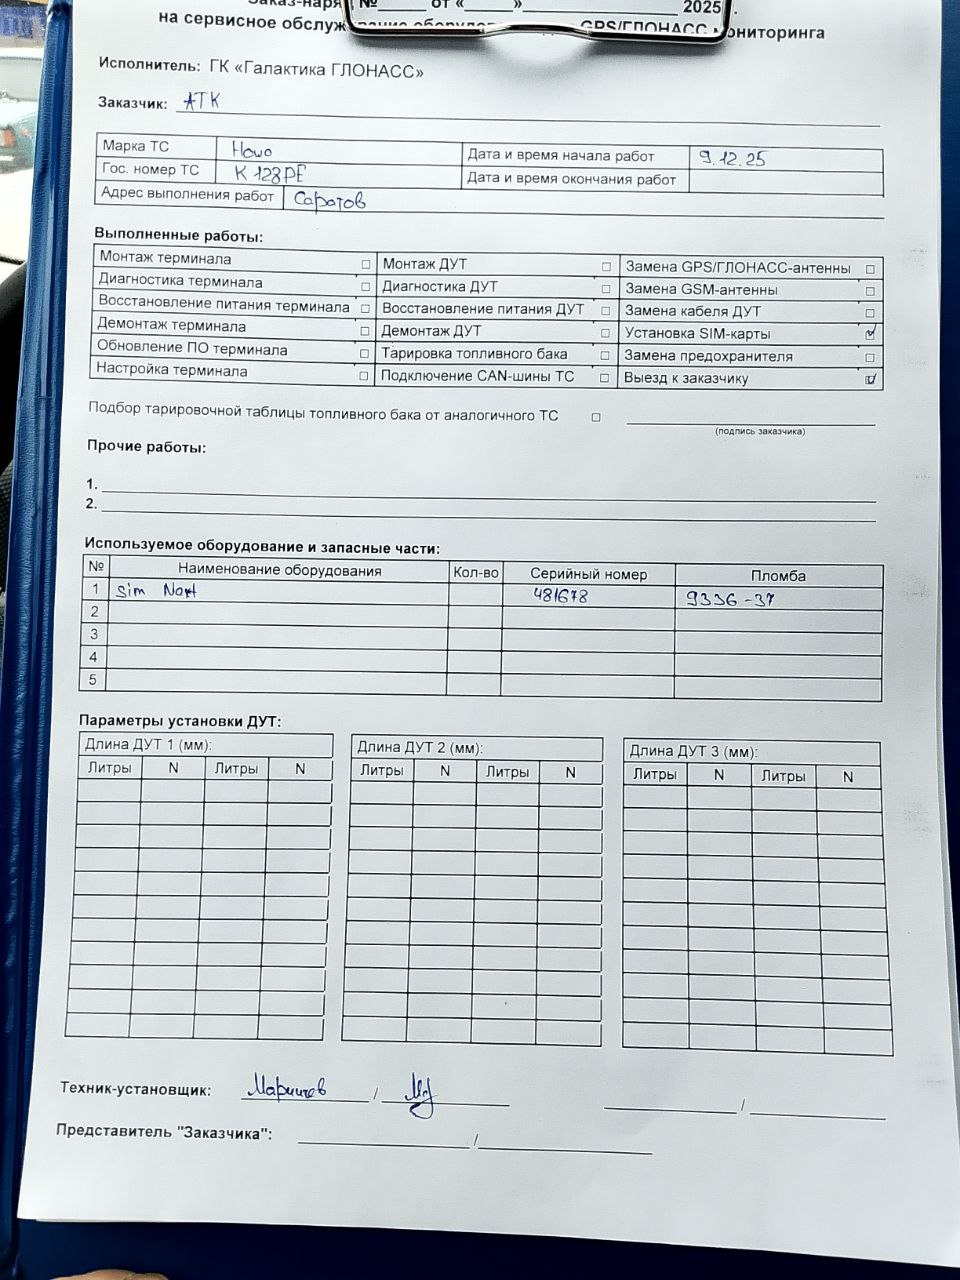 Заказ-наря № от « » 2025 .
на сервисное обслуж GPS/ГЛОНАСС мониторинга
Исполнитель: ГК «Галактика ГЛОНАСС»
Заказчик: АТК
Марка ТС Howo Дата и время начала работ 9.12.25
Гос. номер ТС К 123РЕ Дата и время окончания работ
Адрес выполнения работ Саратов
Выполненные работы:
Монтаж терминала □ Монтаж ДУТ □ Замена GPS/ГЛОНАСС-антенны □
Диагностика терминала □ Диагностика ДУТ □ Замена GSM-антенны □
Восстановление питания терминала □ Восстановление питания ДУТ □ Замена кабеля ДУТ □
Демонтаж терминала □ Демонтаж ДУТ □ Установка SIM-карты ☑
Обновление ПО терминала □ Тарировка топливного бака □ Замена предохранителя □
Настройка терминала □ Подключение CAN-шины ТС □ Выезд к заказчику ☑
Подбор тарировочной таблицы топливного бака от аналогичного ТС □
(подпись заказчика)
Прочие работы:
1.
2.
Используемое оборудование и запасные части:
№ Наименование оборудования Кол-во Серийный номер Пломба
1 Sim 481678 9336-37
2
3
4
5
Параметры установки ДУТ:
Длина ДУТ 1 (мм): Длина ДУТ 2 (мм): Длина ДУТ 3 (мм):
Литры N Литры N Литры N Литры N Литры N Литры N
Техник-установщик: / /
Представитель "Заказчика": /